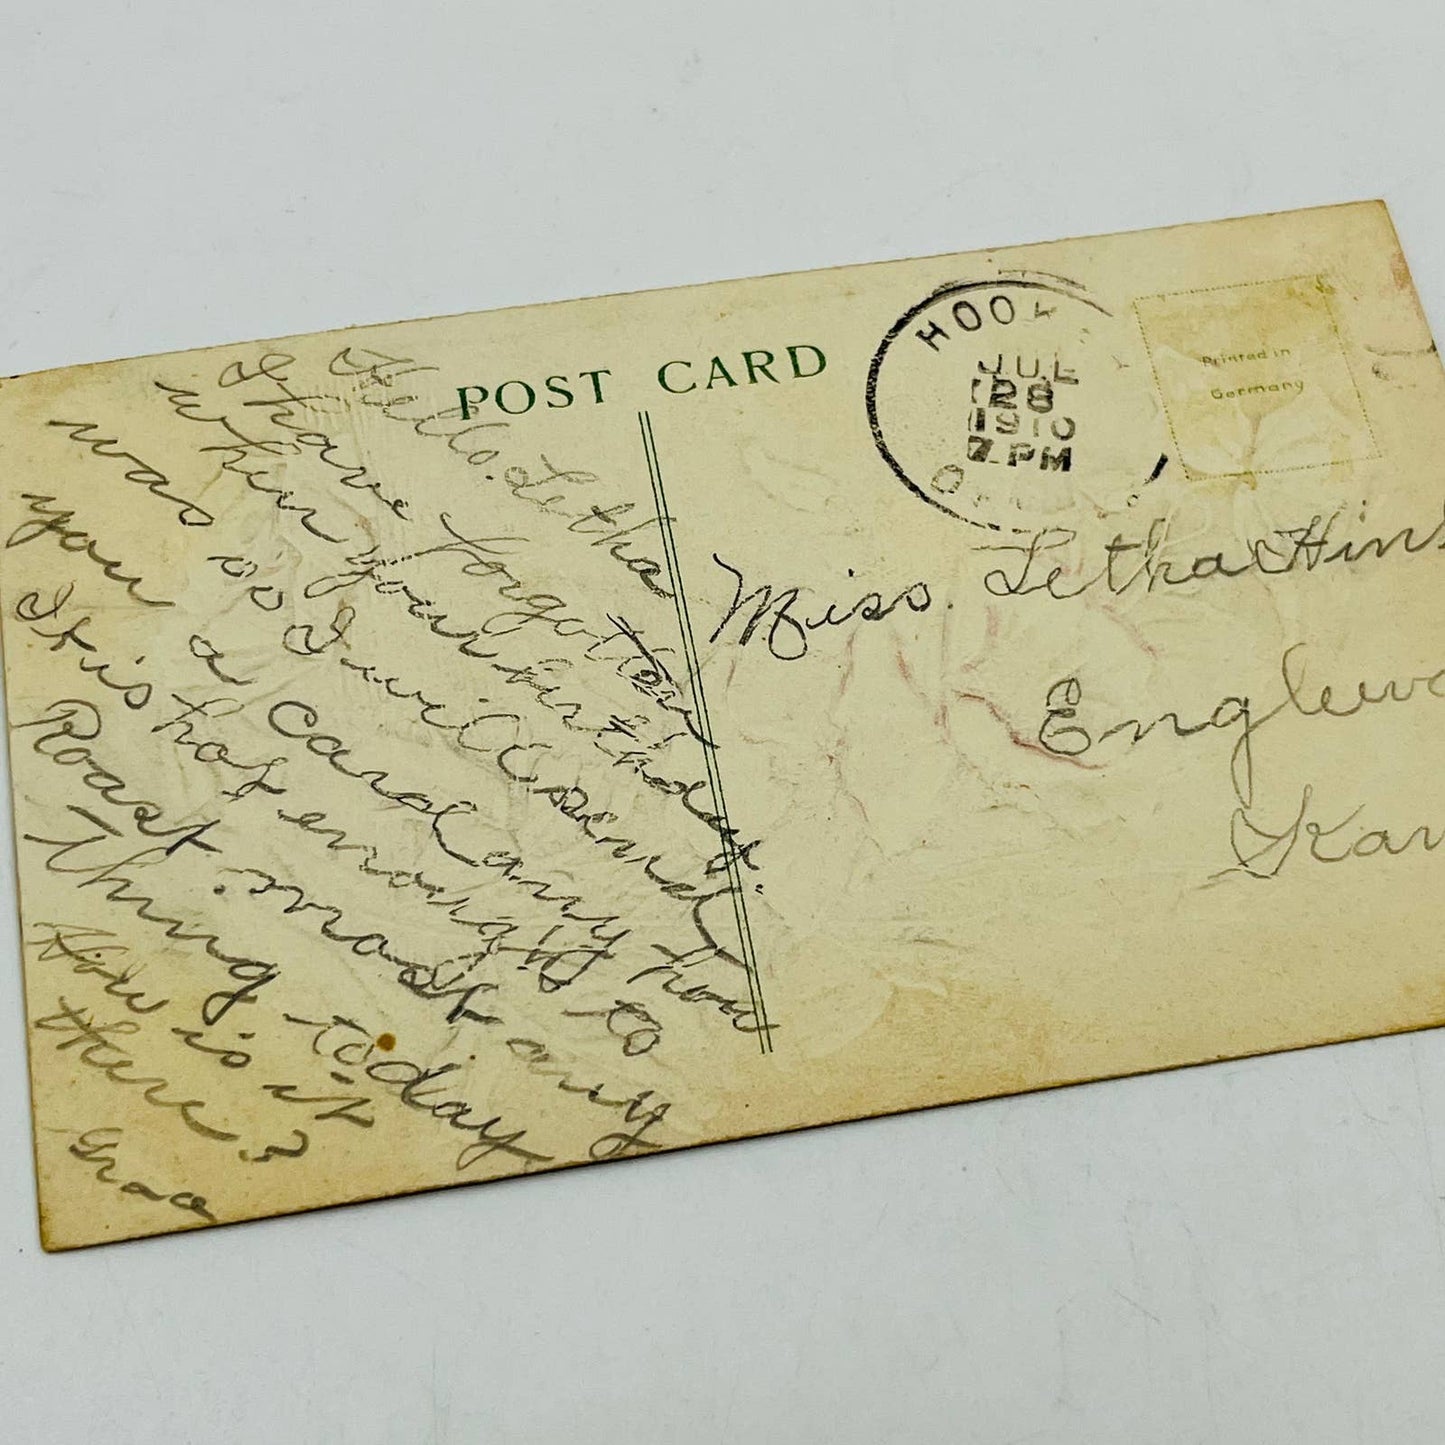 POST CARD
HOOK
JUL
28
1910
7 PM
O
Printed in
Germany
Hello. Letha
I have forgotten
when your birthday.
was so I will send
you a card any how
It is hot enough to
Roast most any
Thing today
How is it
there?
Miss. Letha Hins
Englewo
Kan